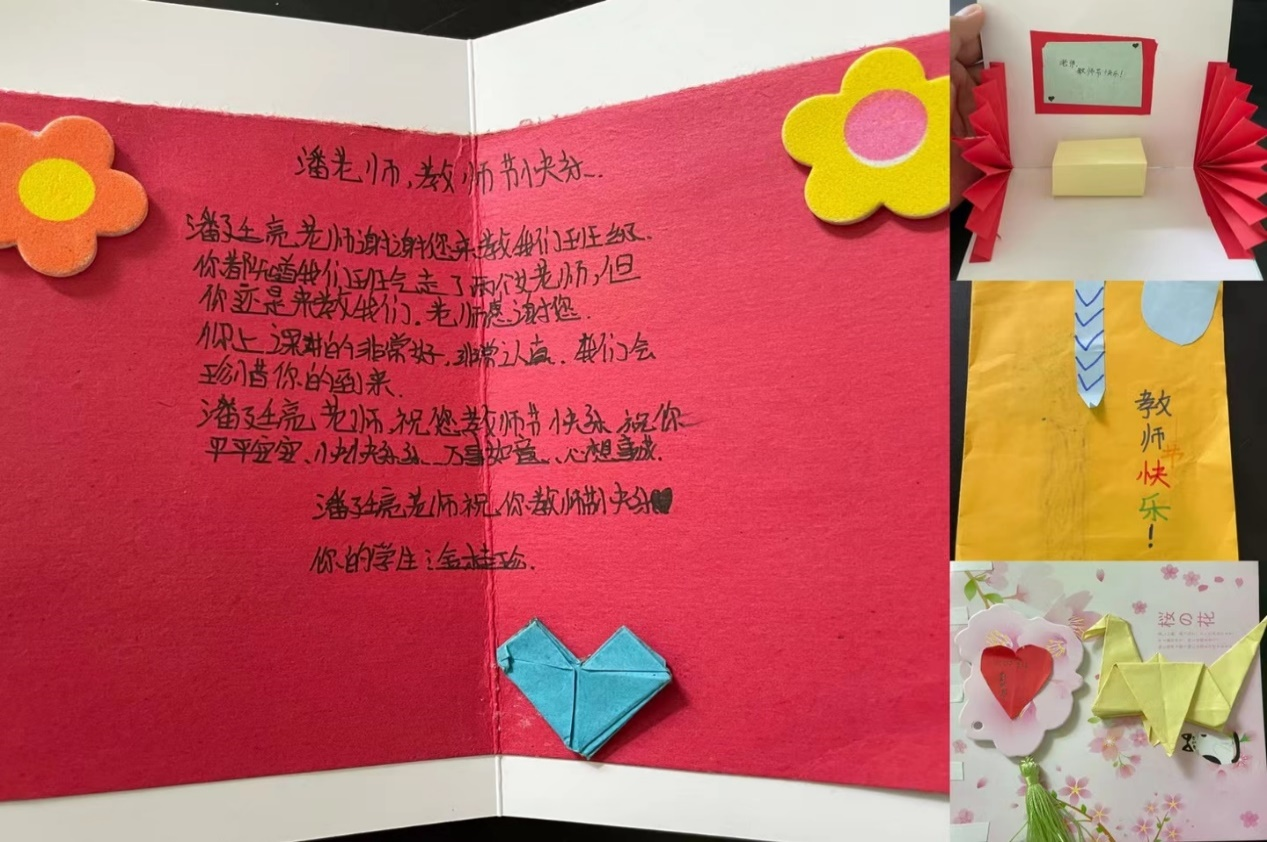 潘老师,教师节快乐.
潘廷亮老师谢谢您来教我们班级.
你都知道我们班气走了两个女老师,但
你还是来教我们.老师感谢您.
你上课讲的非常好,非常认真.我们会
珍惜你的到来.
潘廷亮老师,祝您教师节快乐,祝你
平平安安、快快乐乐、万事如意、心想事成.
潘廷亮老师祝你教师节快乐
你的学生:涂桂珍.
老师,
教师节快乐!
教师节快乐!
桜の花